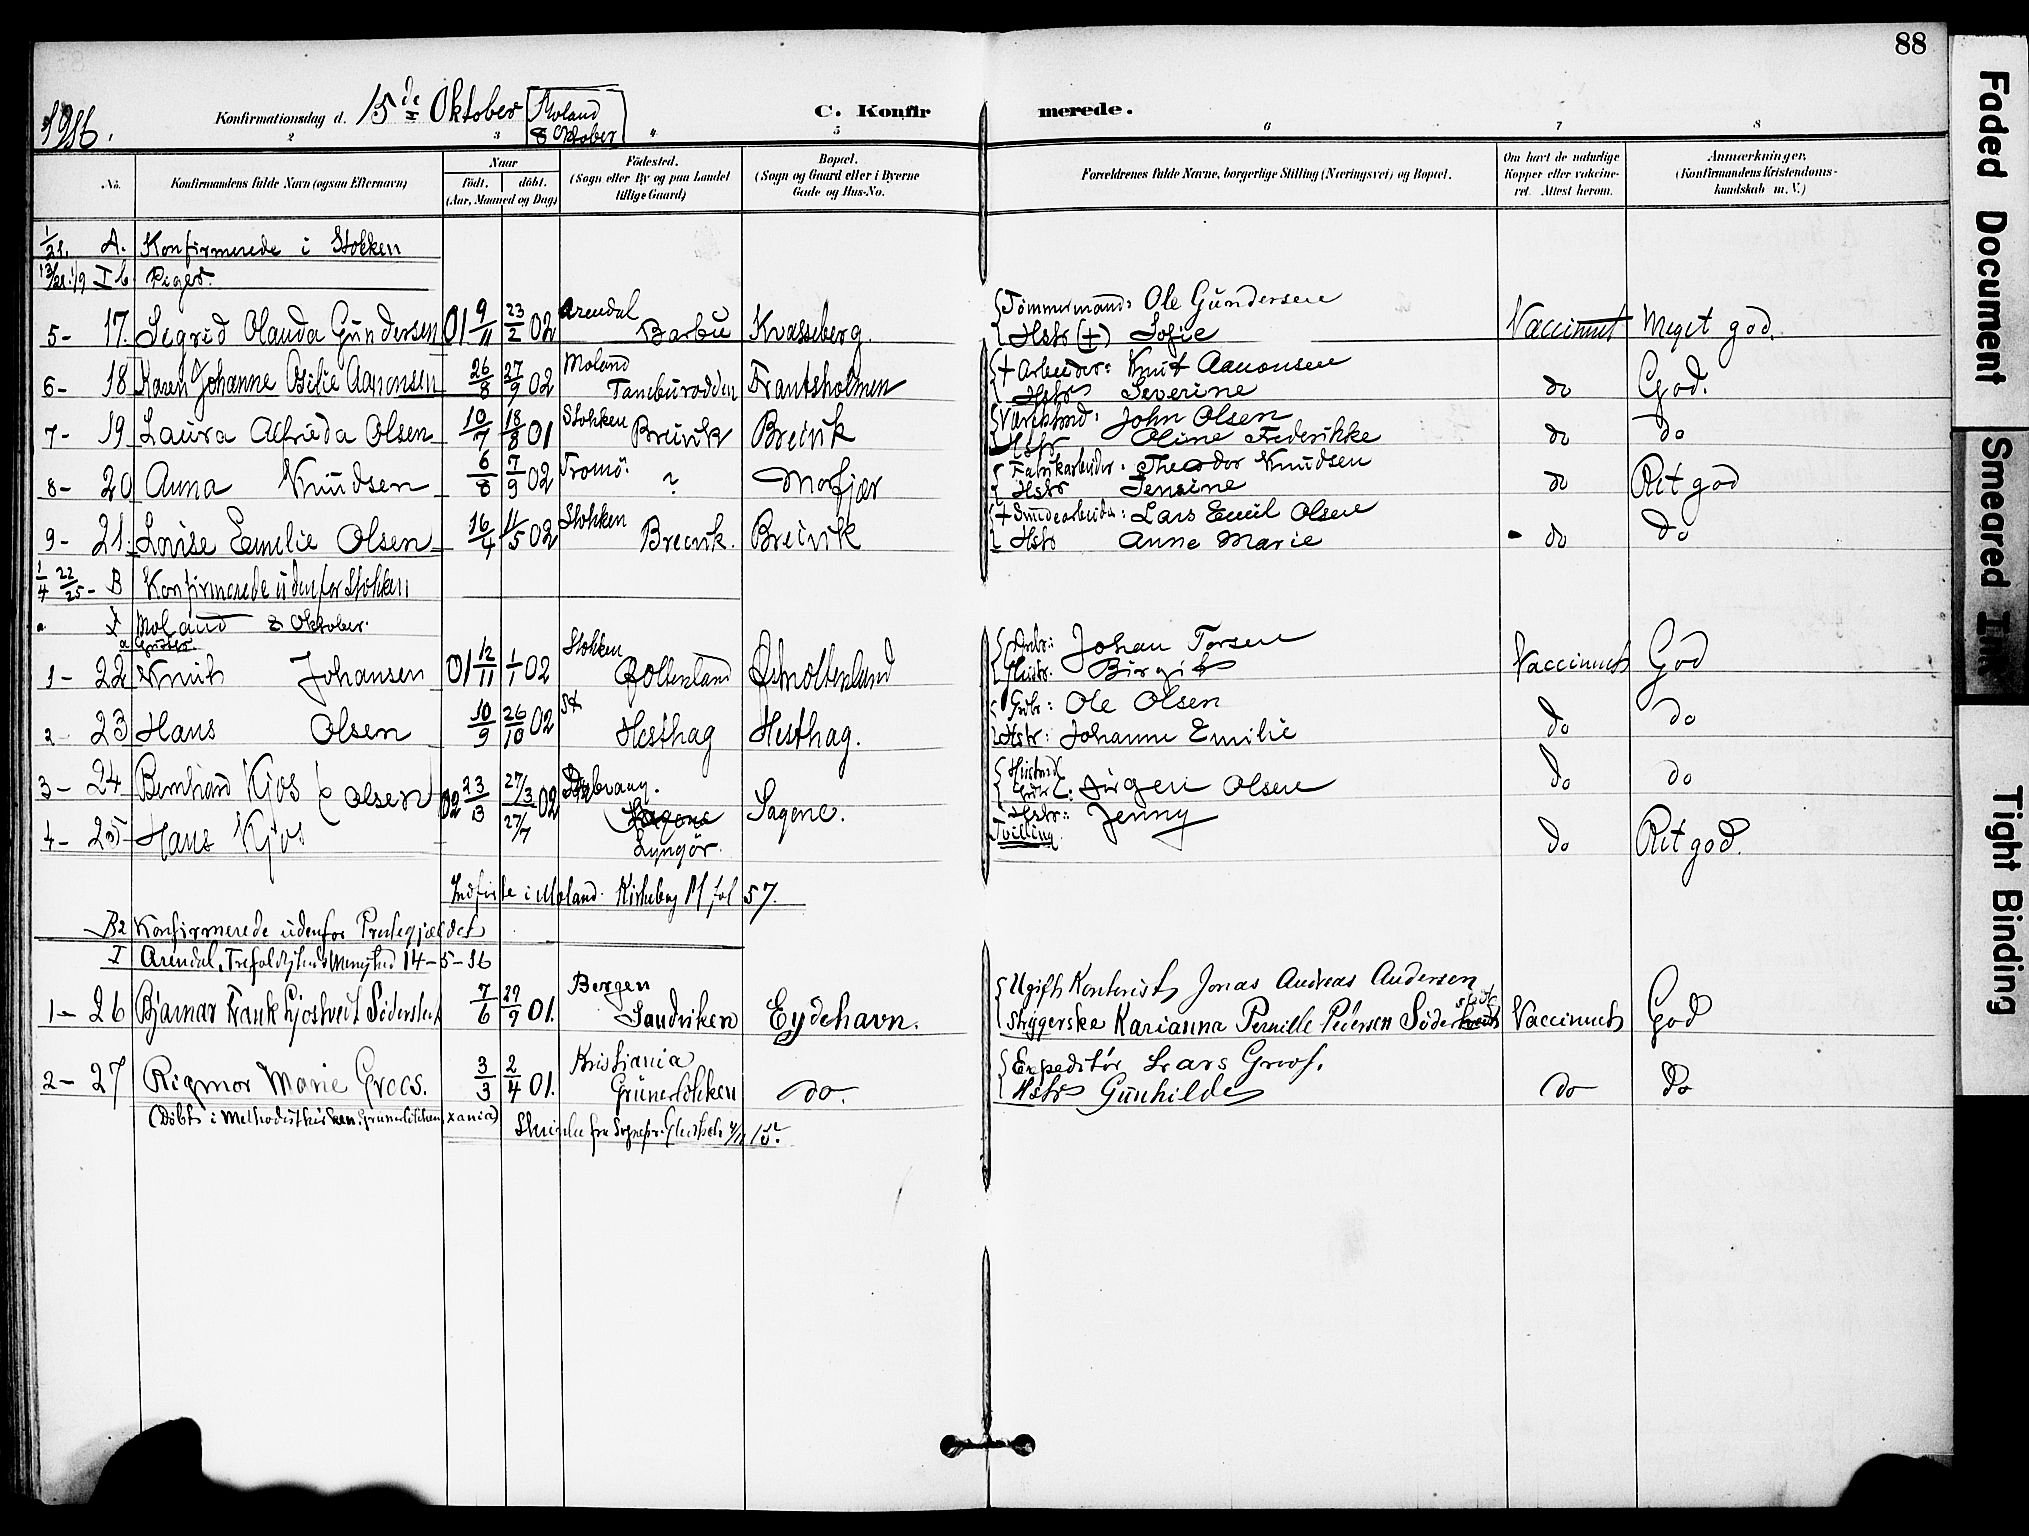 88
1916.
Konfirmationsdag d. 15de Oktober Moland
8 Oktober
C. Konfirmerede.
2 3 4 5 6 7 8
No.
Konfirmandens fulde Navn (ogsaa Efternavn)
Naar
födt. döbt.
(Aar, Maaned og Dag)
Födested.
(Sogn eller By og paa Landet
tillige Gaard)
Bopæl.
(Sogn og Gaard eller i Byerne
Gade og Hus-No.
Forældrenes fulde Navne, borgerlige Stilling (Næringsvei) og Bopæl.
Om havt de naturlige
Kopper eller vaccine-
ret. Attest herom.
Anmærkninger.
(Konfirmandens Kristendoms-
kundskab m. V.)
A. Konfirmerede i Stokken
I b. Piger.
5- 17. Sigrid Olauda Gundersen 01 9/11 23/2 02 Arendal Barbu Kvasseberg. Tömmermand: Ole Gundersen
Hstr (+) Sofie Vaccineret Meget god.
6- 18 Karen Johanne Otilie Aanonsen 26/8 27/9 02 Moland Fransholmen + Arbeider: Knut Aanonsen
Hstr Severine do God.
7- 19 Laura Alfrida Olsen 10/7 18/8 01 Stokken Breivik Breivik John Olsen
Hstr Oline Frederikke do do
8- 20 Anna Knudsen 6/8 7/9 02 Tromö. ? Morfjær Fabrikarbeider: Theodor Knudsen
Hstr Jensine do Ret god
9- 21. Lovise Emelie Olsen 16/4 11/5 02 Stokken Breivik. Breivik + Smedearbeider: Lars Emil Olsen
Hstr Anne Marie do do
B Konfirmerede udenfor Stokken
I Moland 8 Oktober.
a Gutter.
1- 22 Knut Johansen 01 12/11 1/1 02 Stokken Goltenland Johan Torsen
Birgit Vaccineret God
2- 23 Hans Olsen 10/9 26/10 02 St Hesthag Hesthag. Gbr: Ole Olsen
Hstr: Johanne Emilie do do
3- 24 Bernhard Kjos Olsen 02 23/3 27/3 02 Dybvaag. Sagene. Jörgen Olsen do do
4- 25 Hans Kjos 27/7 Lyngör. Hstr: Jenny
Tvilling do Ret god.
Indförte i Moland Kirkebog fol 57.
B2 Konfirmerede udenfor Prestegjældet
I Arendal, Trefoldighedsmenighed 14-5-16
1- 26 Bjarnar Frank 7/6 29/9 01. Bergen Sandviken Eydehavn. Ugift Kontorist Jonas Andreas Andersen
Strygerske Karianna Pernille Pedersen Vaccineret God
2- 27 Rigmor Marie Groos. 3/3 2/4 01. Kristiania Grünerlökken do. Expeditör Lars Groos.
Hstr Gunhilde do do
(Döbt i Methodistkirken, Grünerlökken, Xania)
Faded Document
Smeared Ink
Tight Binding